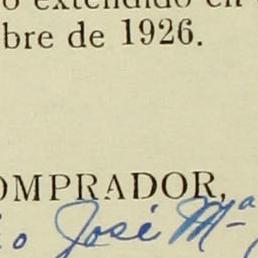 o extendido en
bre de 1926.
OMPRADOR,
o José Mª